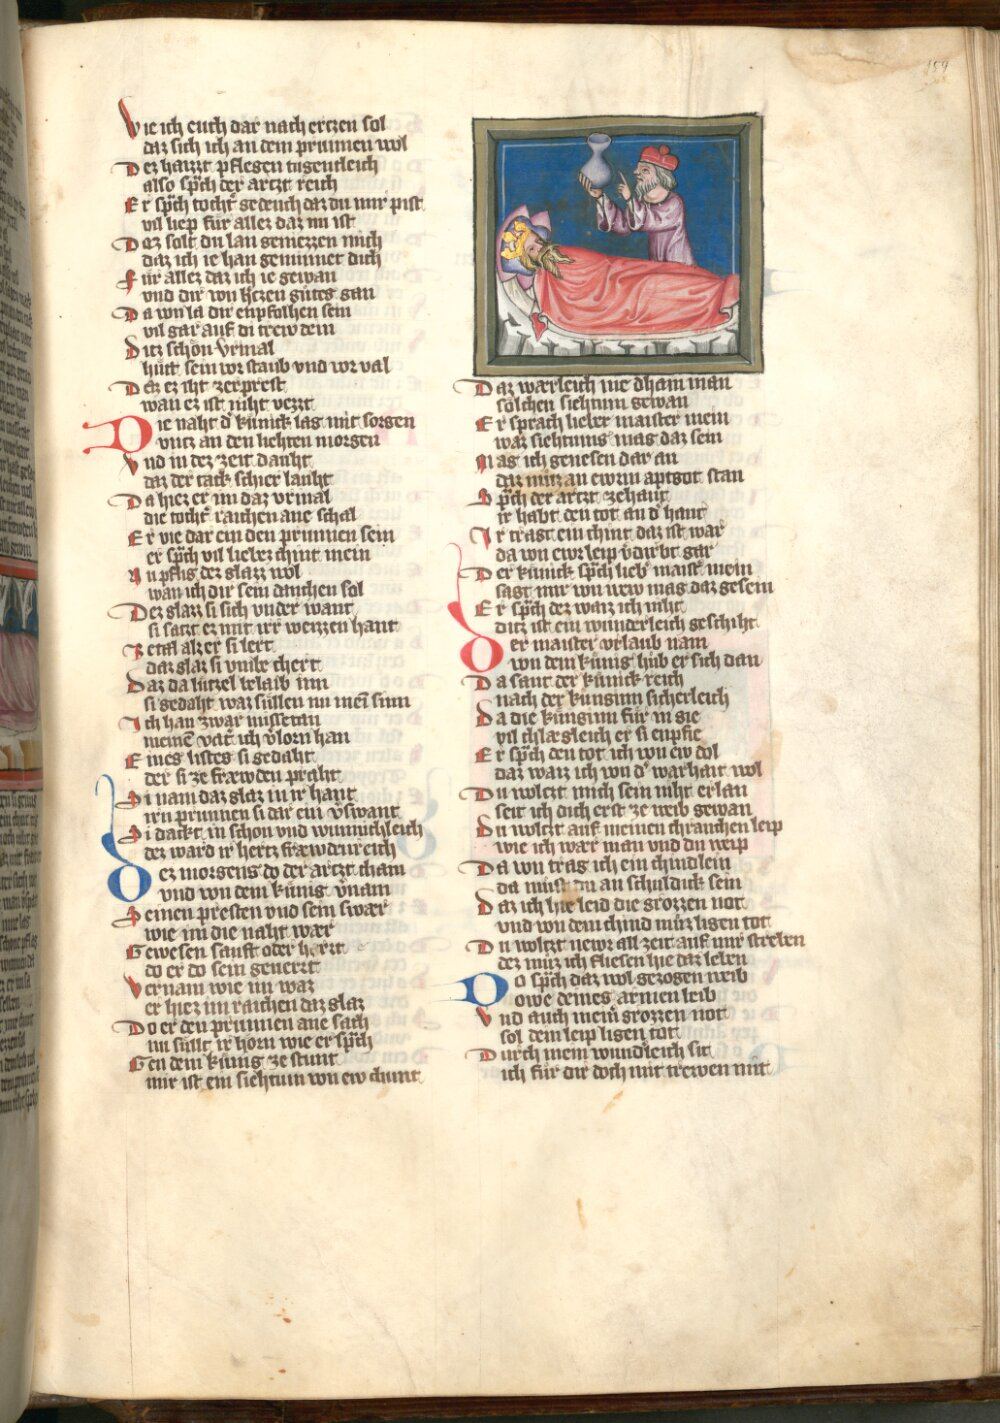 159
Wie ich euch dar nach ertzen sol
daz sich ich an dem prunnen wol
Dez hartzt pflegen tugentleich
also spͨch der artzt reich
Er spͨch tochtͬ gedench daz du mir pist
vil liep fur allez daz nu ist
Dez solt du lan geniezzen mich
daz ich ie han geminnet dich
Fur allez daz ich ie gewan
vnd dir von hͨzen gutes gan
Da von la dir enpfolhen sein
vil gar auf di trew dein
Ditz schon vrinal
hutt sein vor staub vnd vor val
Daz ez iht zerprest
wan ez ist niht vezzt
Die naht dͬ kunick lag mit sorgen
vntz an den liehten morgen
Vnd in der zeit dauht
daz der tack schier lauht
Da hiez er im daz vrinal
die tochtͬ raichen ane schal
Er vie dar ein den prunnen sein
er spͨch vil liebez chint mein
Nu pflig dez glazz wol
wan ich dir sein danchen sol
Dez glaz si sich vnder want
si satzt ez mit irr weizzen hant
Retal alz er si lert
daz glaz si vmbe chert
Daz da lutzel belaib inn
si gedaht waz sullen nu mein sinn
Ich han zwar missetan
meinē vatͬ ich vͬlorn han
Eines listes si gedaht
der si ze frewden praht
Si nam daz glaz in ir hant
irn prunnen si dar ein vͬswant
Si dackt in schon vnd wunnichleich
dez ward ir hertz frewdenreich
Dez morgens do der artzt cham
vnd von dem kunig vͬnam
Seinen presten vnd sein swær
wie im die naht wær
Gewesen sanft oder hert
do er do sein geuert
Vernam wie im waz
er hiez im raichen daz glaz
Do er den prunnen ane sach
nu sullt ir horn wie er spͨch
Gen dem kunig ze stunt
mir ist ein siehtum von ew chunt
Daz wærleich nie dhain man
solchen siehtum gewan
Er sprach lieber maister mein
waz siehtums mag daz sein
Mag ich genesen dar an
daz muz an ewrm aptgot stan
Spͨch der artzt zehant
ir habt den tot an dͬ hant
Ir tragt ein chint daz ist war
da von ewr leip vͬdirbt gar
Der kunick spͨch liebͬ maistͬ mein
sagt mir von wew mag daz gesein
Er spͨch dez waiz ich niht
ditz ist ein wunderleich geschiht
Der maister vrlaub nam
von dem kunig hub er sich dan
Da sant der kunick reich
nach der kuniginn sicherleich
Da die kuniginn fur in gie
vil chlægleich er si enpfie
Er spͨch den tot ich von ew dol
daz waiz ich von dͬ warhait wol
Du woltzt mich sein niht erlan
seit ich dich erst ze weib gewan
Du woltzt auf meinen chranchen leip
wie ich wær man vnd du weip
Da von trag ich ein chindlein
da must du an schuldick sein
Daz ich hie leid die grozzen not
vnd von dem chind muz ligen tot
Du woltzt newr all zeit auf mir streben
dez muz ich fliesen hie daz leben
Do spͨch daz wol gezogen weib
owe deines armen leib
Vnd auch meinͬ grozzen not
sol dein leip ligen tot
Durch mein wundͬleich sit
ich fur dir doch mit trewen mit